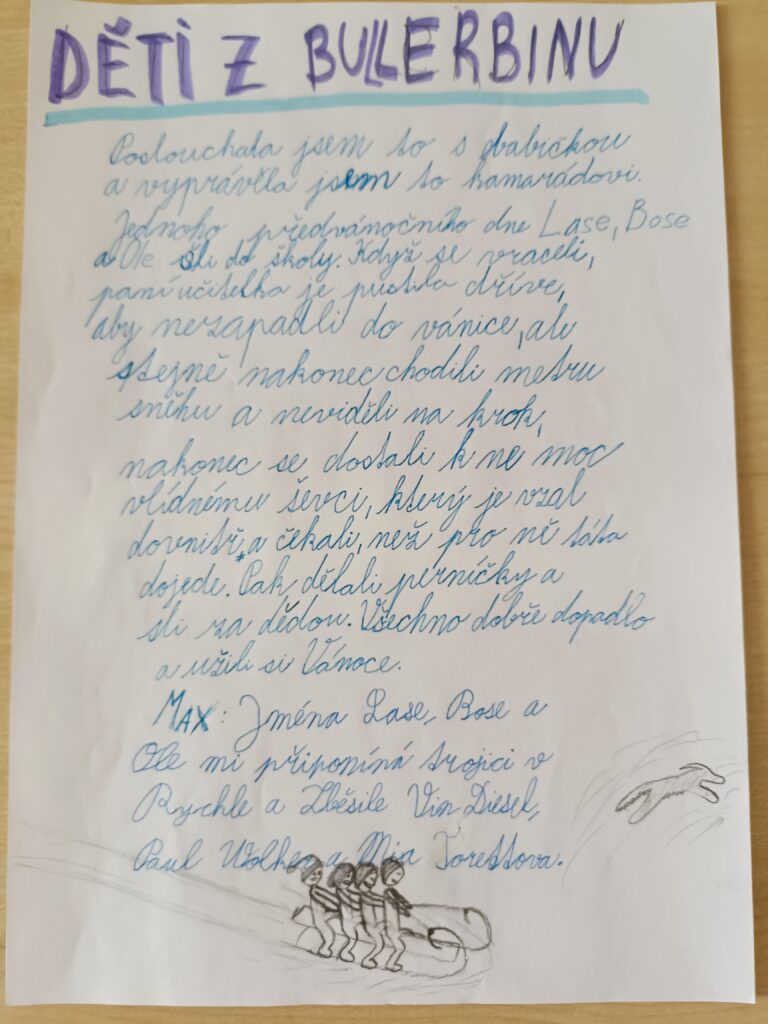 DĚTI Z BULLERBINU
Poslouchala jsem to s babičkou
a vyprávěla jsem to kamarádovi.
Jednoho předvánočního dne Lase, Bose
a Ole šli do školy. Když se vraceli,
paní učitelka je pustila dříve,
aby nezapadli do vánice, ale
stejně nakonec chodili metru
sněhu a neviděli na krok,
nakonec se dostali k ne moc
vlídnému ševci, který je vzal
dovnitř, a čekali, než pro ně táta
dojede. Pak dělali perníčky a
šli za dědou. Všechno dobře dopadlo
a užili si Vánoce.
MAX: Jména Lase, Bose a
Ole mi připomíná trojici v
Rychle a Zběsile Vin Diesel,
Paul Wolker a Mia Torettova.